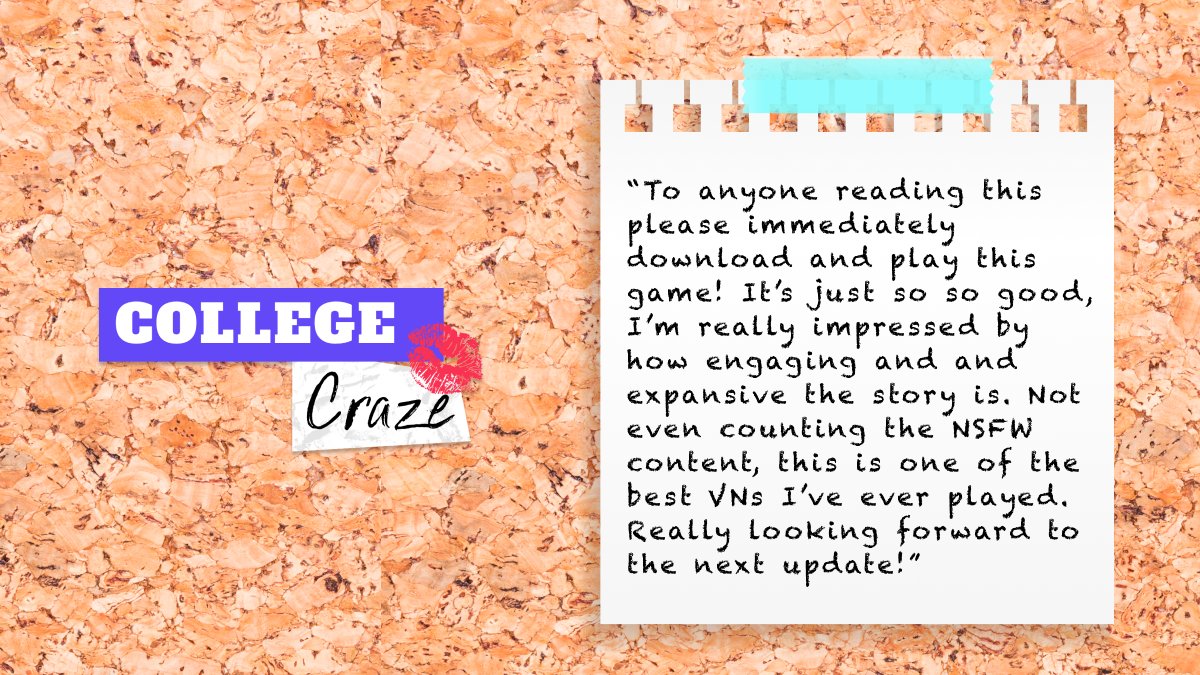 COLLEGE
Craze
“To anyone reading this
please immediately
download and play this
game! It’s just so so good,
I’m really impressed by
how engaging and and
expansive the story is. Not
even counting the NSFW
content, this is one of the
best VNs I’ve ever played.
Really looking forward to
the next update!”